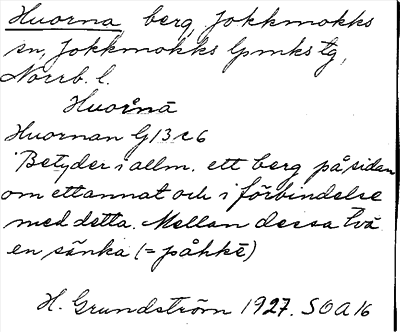 Huorna berg, Jokkmokks
sn, Jokkmokks lpmks tg,
Norrb. l.
Huorˈnā
Huornan G/3 c 6
Betyder i allm. ett berg på sidan
om ett annat och i förbindelse
med detta. Mellan dessa två
en sänka (= påhkē)
H. Grundström 1927. SOA 16